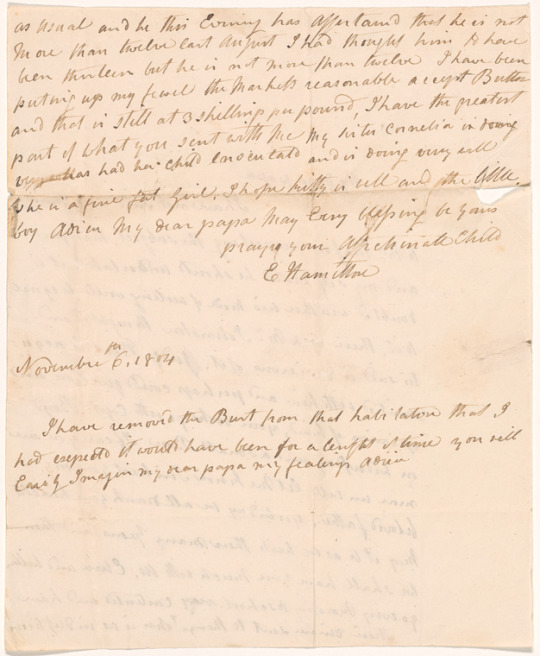 as usual and he this Evening has Assertained that he is not
More than twelve last August I had thought him to have
been thirteen but he is not more than twelve I have been
putting up my fewel the Markets reasonable accept Butter
and that is still at 3 shelling per pound, I have the greatest
part of what you sent with Me My sister Cornelia is doing
has had her Child enoculated and is doing very well
she is a fine fat Girl. I hope kitty is well and the little
boy Adieu My dear papa May Every blessing be yours
prays your Affectionate Child
E Hamilton
Novembre 6th, 1804
I have removed the Bust from that habitation that I
had expected it would have been for a lenght of time you will
Easily Imagin my dear papa my fealings Adieu